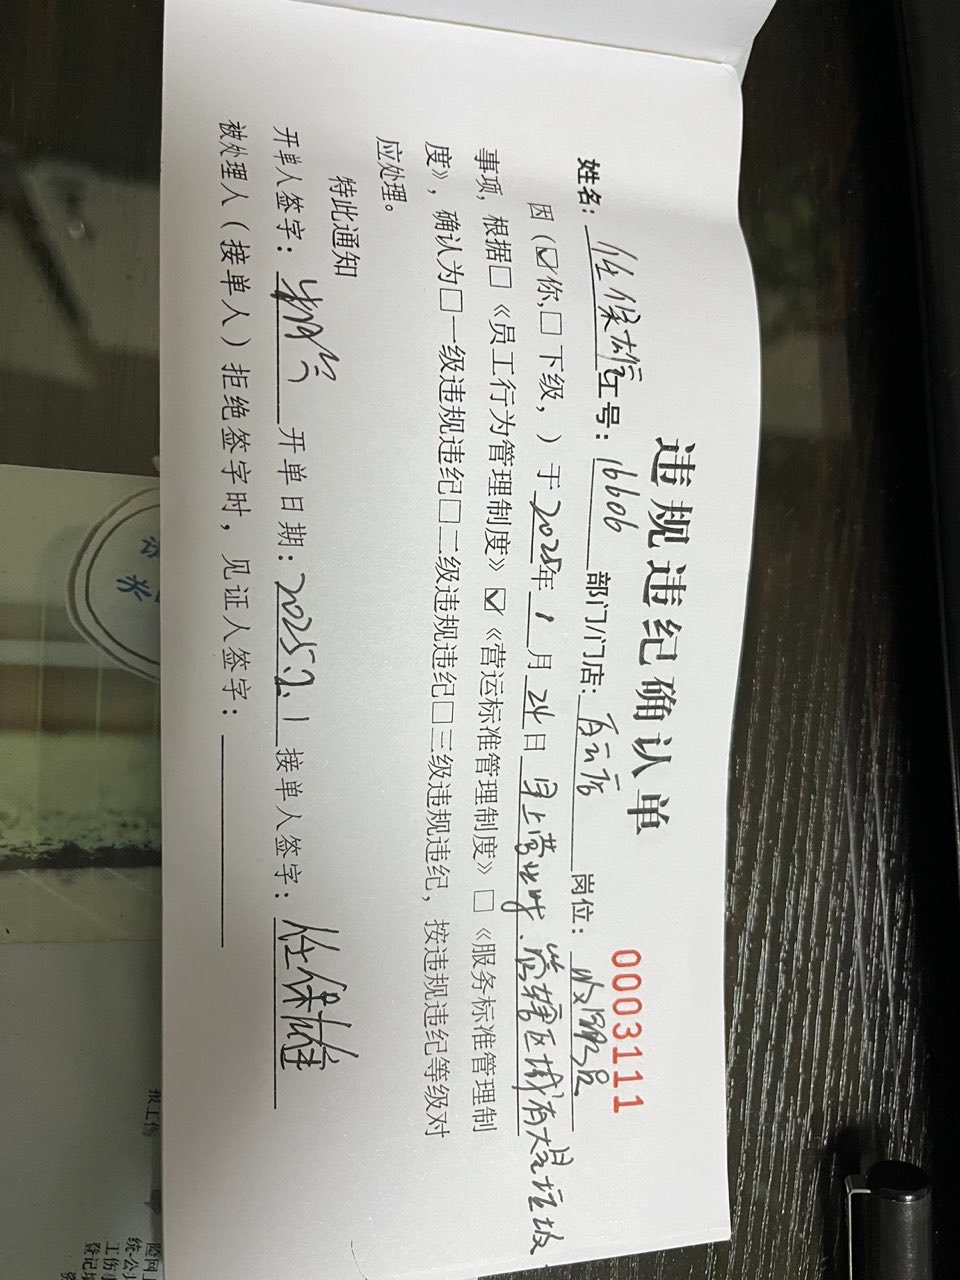 违规违纪确认单
0003111
姓名：任保雄 工号：16606 部门/门店：百云店 岗位：收银员
因（☑你,□下级，）于2025年1月24日早上营业时.管辖区域有大量垃圾
事项，根据□《员工行为管理制度》☑《营运标准管理制度》□《服务标准管理制
度》，确认为□一级违规违纪□二级违规违纪□三级违规违纪，按违规违纪等级对
应处理。
特此通知
开单人签字： 开单日期：2025.2.1 接单人签字：任保雄
被处理人（接单人）拒绝签字时，见证人签字：
报工伤
险网上
统-公共
工伤事
登记地